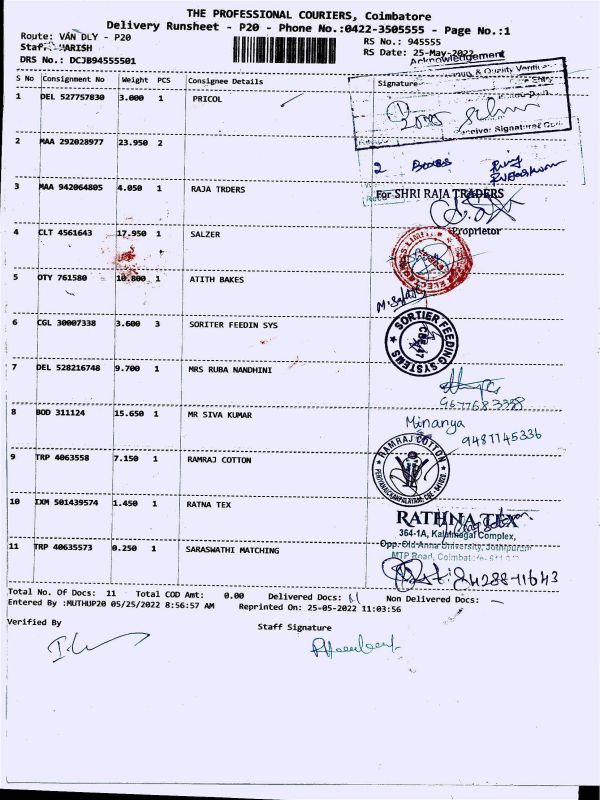 THE PROFESSIONAL COURIERS, Coimbatore
Delivery Runsheet - P20 - Phone No.:0422-3505555 - Page No.:1
Route: VAN DLY - P20
RS No.: 945555
RS Date: 25-May-2022
DRS No.: DCJB94555501
Acknowledgement
S No Consignment No Weight PCS Consignee Details Signature
1 DEL 527757830 3.000 1 PRICOL
2 MAA 292028977 23.950 2
2 Boxes
3 MAA 942064805 4.050 1 RAJA TRDERS
For SHRI RAJA TRADERS
Proprietor
4 CLT 4561643 17.950 1 SALZER
5 OTY 761580 10.800 1 ATITH BAKES
6 CGL 30007338 3.600 3 SORITER FEEDIN SYS
SORTIER FEEDING SYSTEMS
7 DEL 528216748 9.700 1 MRS RUBA NANDHINI
8 BOD 311124 15.650 1 MR SIVA KUMAR
Minanya
9487145336
9 TRP 4063558 7.150 1 RAMRAJ COTTON
RAMRAJ COTTON
10 IXM 501439574 1.450 1 RATNA TEX
RATHNA TEX
364-1A, Complex,
Opp. Old Anna University, Jothipuram
MTP Road,
11 TRP 40635573 0.250 1 SARASWATHI MATCHING
Total No. Of Docs: 11 Total COD Amt: 0.00 Delivered Docs: 11 Non Delivered Docs: -
Entered By :MUTHUP20 05/25/2022 8:56:57 AM Reprinted On: 25-05-2022 11:03:56
Verified By
Staff Signature